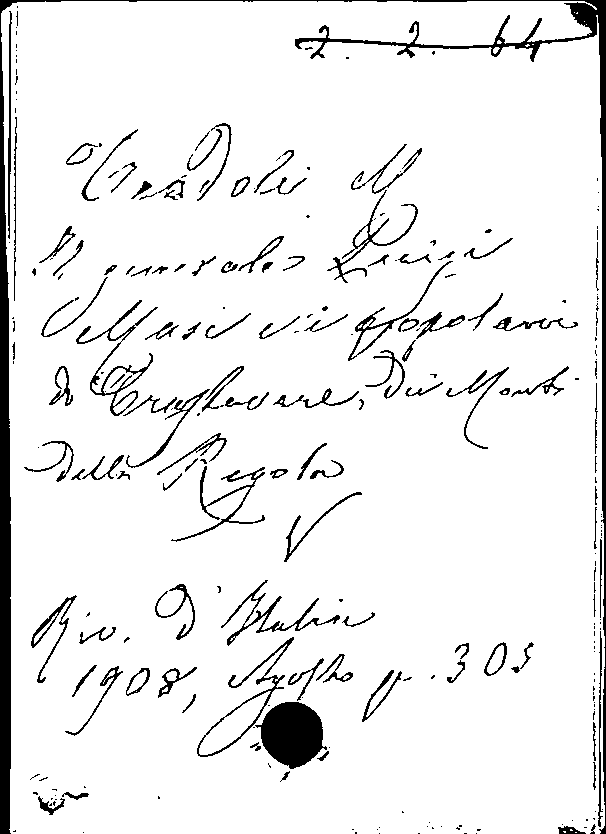 2. 2. 64
Tesdoli M
Il generale Luigi
Masi e i popolani
di Trastevere, dei Monti
della Regola
Riv. d'Italia
1908, Agosto p. 303